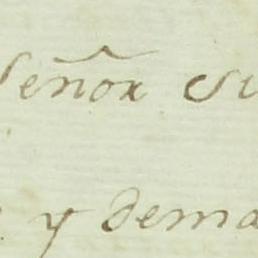 Señor
y dema